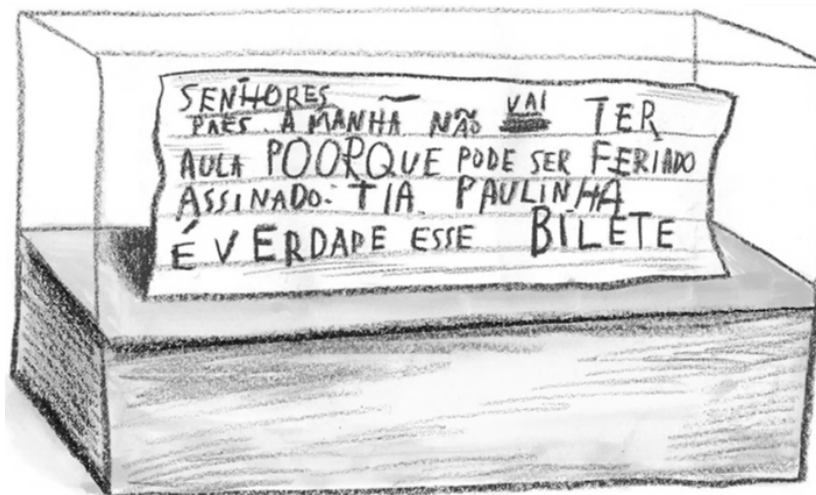 SENHORES
PAES. AMANHÃ NÃO VAI TER
AULA POORQUE PODE SER FERIADO
ASSINADO. TIA PAULINHA
É VERDADE ESSE BILETE